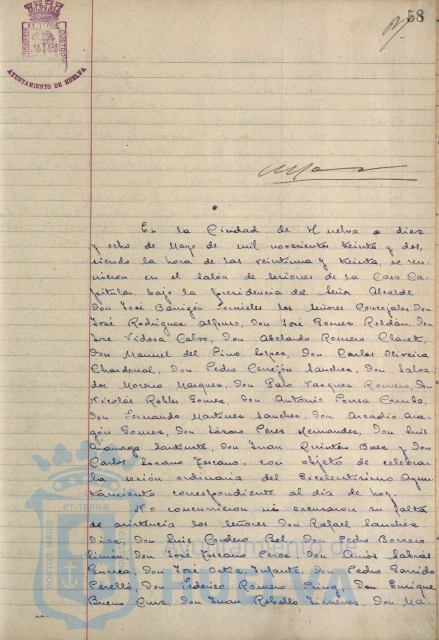 58
AYUNTAMIENTO DE HUELVA
En la Ciudad de Huelva a diez
y ocho de Mayo de mil novecientos treinta y dos,
siendo la hora de las veintiuna y treinta, se reu-
nieron en el salón de sesiones de la Casa Ca-
pitular bajo la presidencia del Señor Alcalde
Don José Barrigón Fornieles los señores Concejales Don
José Rodríguez Alfonso, Don José Gomez Roldán, Don
José Vidosa Calvo, Don Abelardo Romero Claret,
Don Manuel del Pino Lopez, Don Carlos Oliveira
Chardenal, Don Pedro Cerrejón Sanchez, Don Salva-
dor Moreno Marquez, Don Vazquez Romero, Don
Nicolás Robles Gomez, Don Antonio Ponsa
Don Fernando Martinez Sanchez, Don Arcadio Ara-
gón Gomez, Don Lázaro Perez Hernandez, Don Luis
Don Juan Quintero Baez y Don
Carlos Lozano Toscano, con objeto de celebrar
la sesión ordinaria del Excelentísimo Ayun-
tamiento correspondiente al día de hoy.
No concurrieron ni excusaron su falta
de asistencia los señores Don Rafael Sanchez
Diaz, Don Luis Cordero Bel, Don Pedro Borrero
Limón, Don José Toscano Perez, Don Amós Sabrás
Gurrea, Don José Ortiz Infante, Don Pedro Garrido
Perelló, Don Federico Romero Don Enrique
Bueno Cruz, Don Juan Rebollo Jimenez, Don Ma-